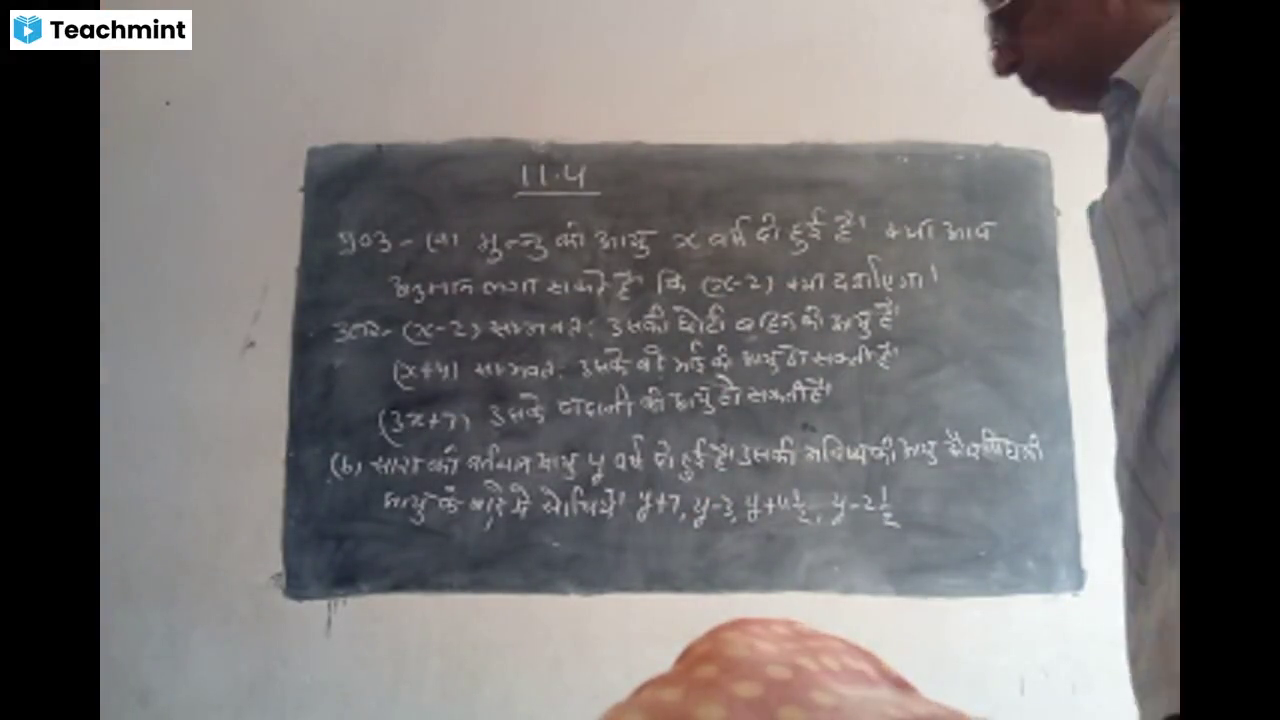 Teachmint
11.4
प्र०3- (a) मुन्नु की आयु x वर्ष दी हुई है। क्या आप
अनुमान लगा सकते हैं कि (x-2) क्या दर्शाएगा।
उत्तर- (x-2) सम्भवत: उसकी छोटी बहिन की आयु है
(x+4) सम्भवत: उसके बड़े भाई की आयु हो सकती है।
(3x+7) उसके दादाजी की आयु हो सकती है।
(b) सारा की वर्तमान आयु y वर्ष दी हुई है। उसकी भविष्य की आयु
आयु के बारे में सोचिये। y+7, y-3, y+4½, y-2½